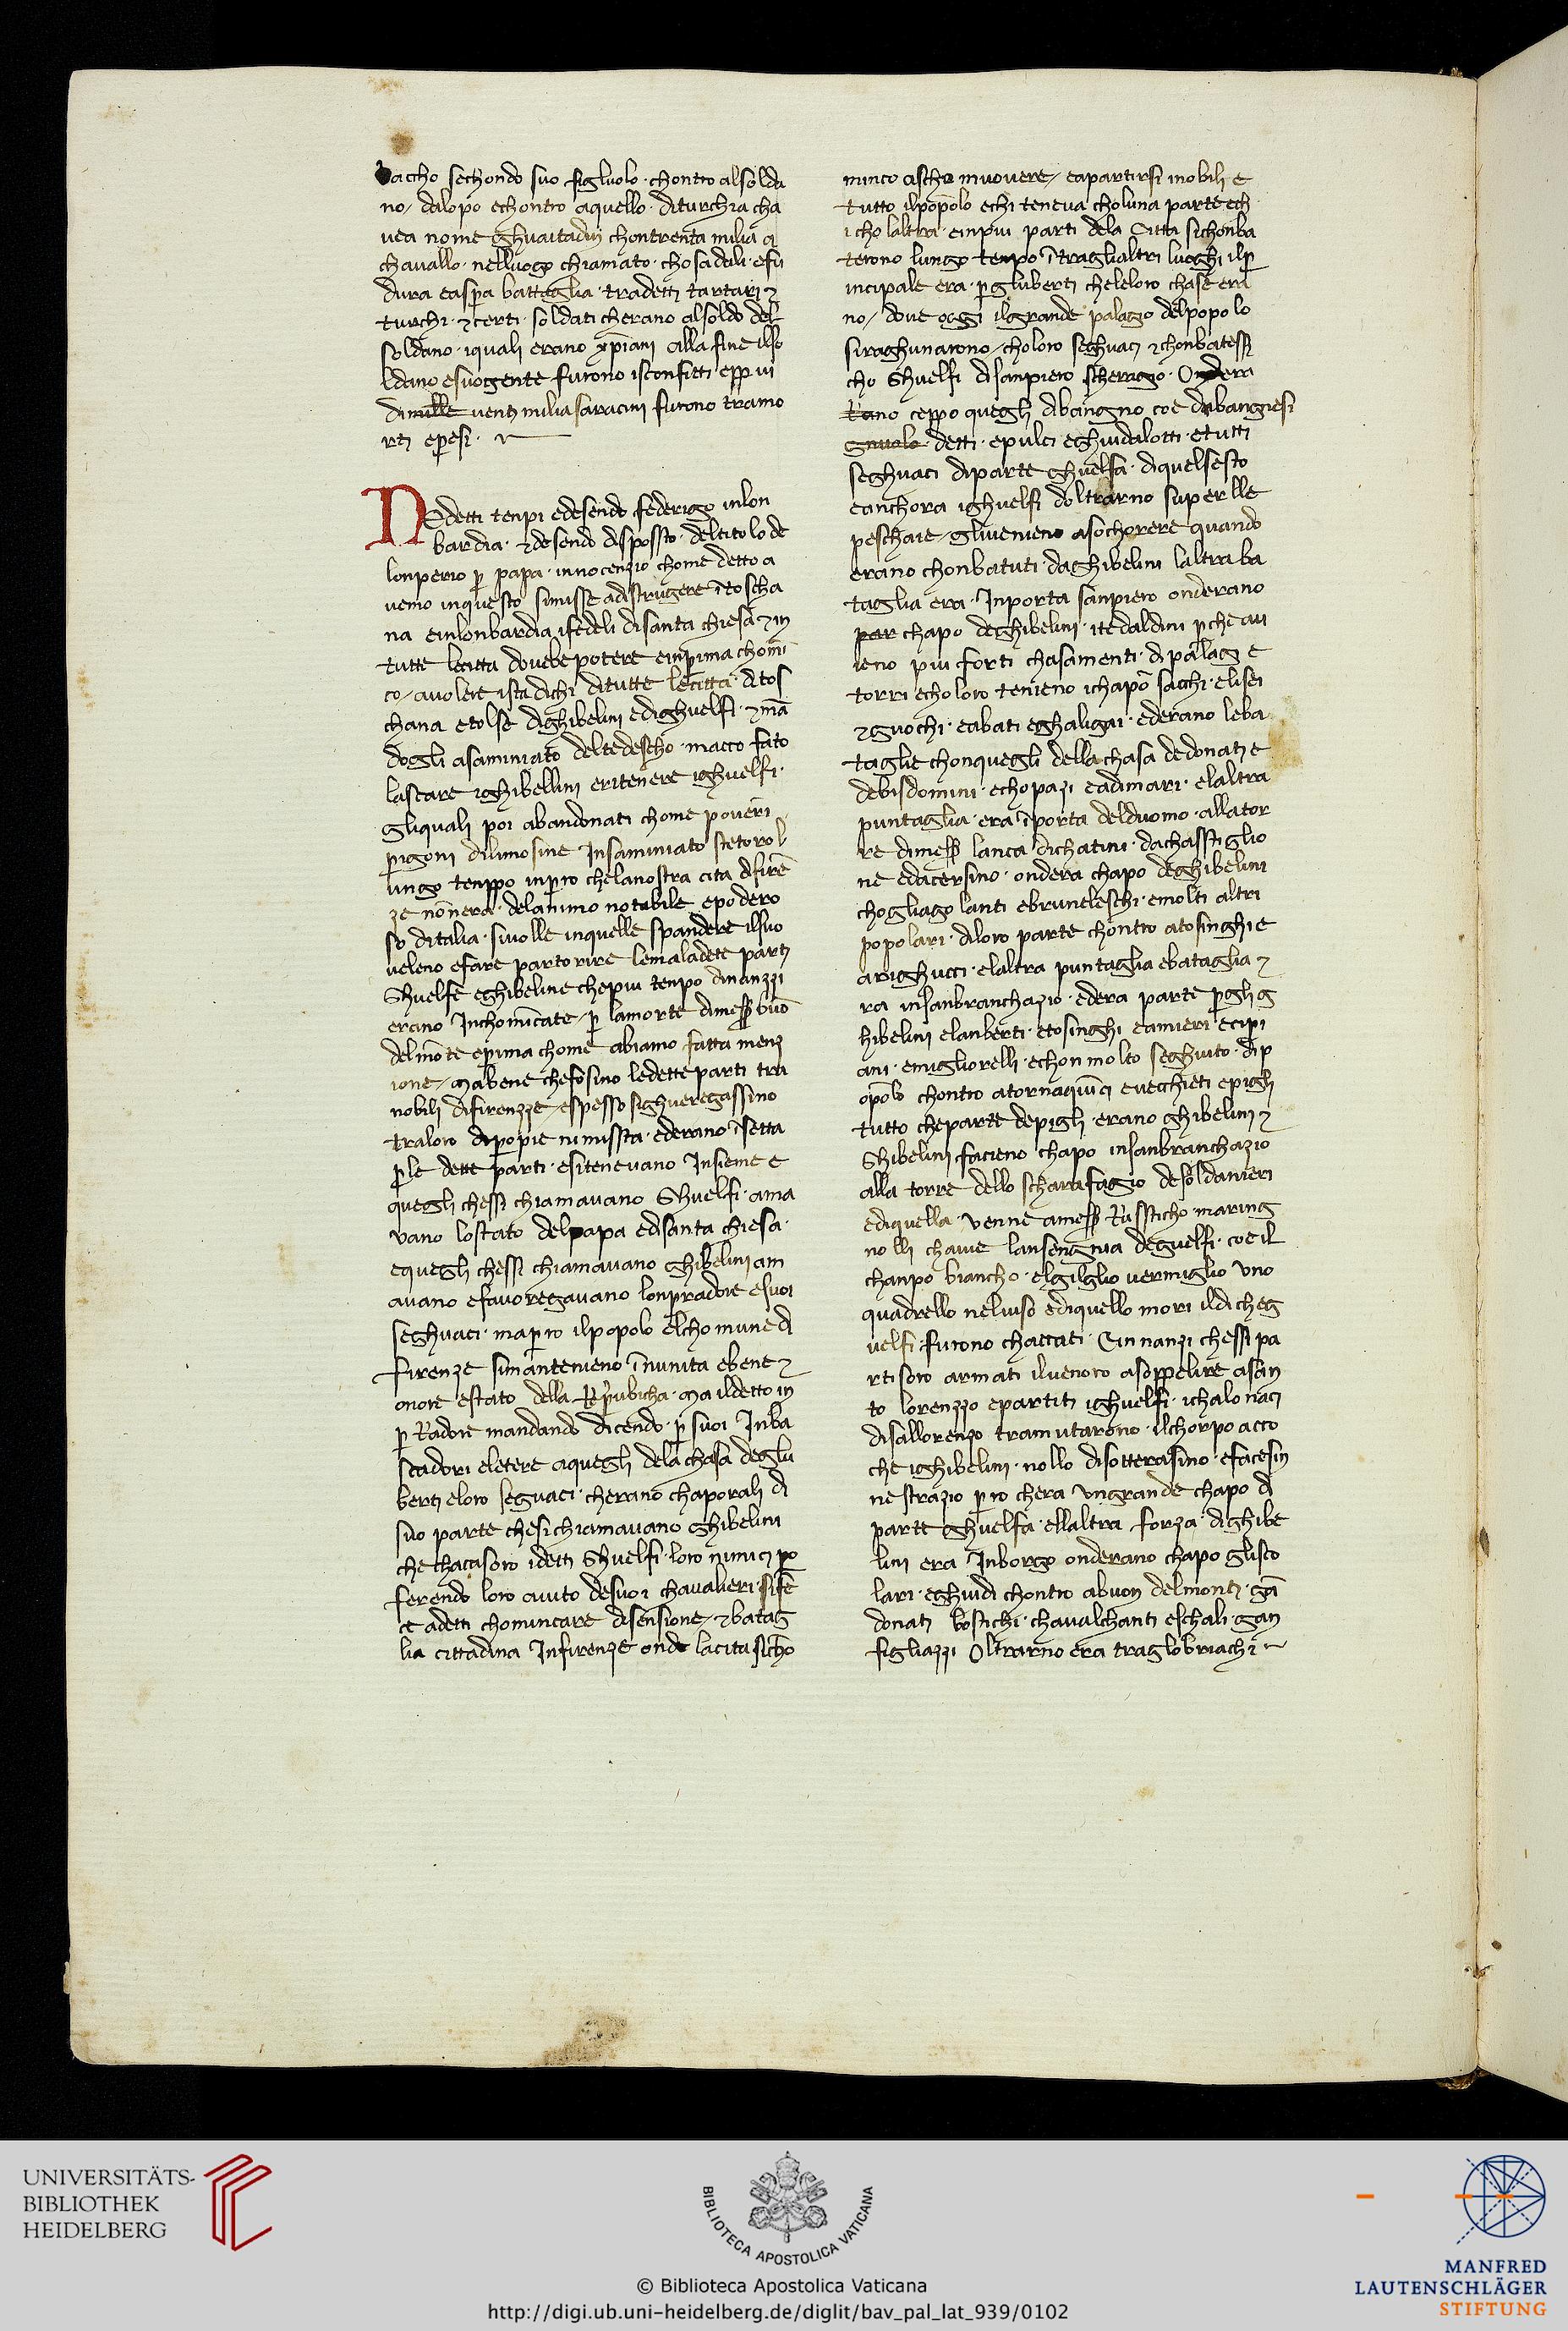 baccho sechondo suo figluolo · chontro alsolda
no / dalopo echontro aquello · diturchia cha
uea nome ghuaitadin chontrenta milia a
chauallo · nelluogo chiamato · chosadali · efu
dura easpra battaglia · tradetti tartari ⁊
turchi · ⁊ certi · soldati cherano alsoldo del
soldano · iquali erano xp̄iani alla fine ilso
ldano esuogente furono isconfitti epp̲iu
dimille uenti milia saracini furono tramo
rti ep̲esi ·
NEdetti tenpi edesendo federigo inlon
bardia · ⁊desendo dispossto · deltitolo de
lonperio p̲ papa · innocenzio chome detto a
uemo inquesto simisse adistrugere ītoscha
na einlonbardia ifedeli disanta chiesa ⁊ in
tutte lecitta douebe potere einprima chomī
co / auolere istadichi ditutte lecitta · ditos
chana etolse dighibelini edighuelfi · ⁊mā
dogli asaminiato deltedescho · macco fato
lascare ighibellini eritenere ighuelfi ·
gliquali poi abandonati chome poueri
p̲igoni dilimosine Insaminiato stetoro l
ungo tenppo inp̲ro chelanostra cita dfirē
ze nōnera · delanimo notabile epodero
so ditalia · siuolle inquelle spandere ilsuo
ueleno efare partorire lemaladete parti
Ghuelfe eghibeline chepiu tenpo dinanzzi
erano Inchominciate / p̲ lamorte dimess̲ buō
delmōte ep̲ima chome abiamo fatta menz
ione / mabene chefosino ledetteparti tra
nobili difirenzze / espesso sighueregassino
traloro dip̲op̲ie nimissta · ederano īsetta
p̲ le dette parti · esitenevano Insieme e
quegli chessi chiamauano Ghuelfi · ama
vano lostato delpapa edisanta chiesa ·
equegli chessi chiamauano ghibelini am
auano efauoregauano lonpradore esuoi
seghuaci · map̲ro ilpopolo elchomune di
firenze simantenieno īnunita ebene ⁊
onore estato della Rp̲iubicha · ma ildetto in
p̲Radore mandando dicendo · p̲ suoi Inba
sciadori eletere aquegli dela chasa deglu
berti eloro seguaci · cherano chaporali di
suo parte chesichiamauano ghibelini
chechacasoro idetti Ghuelfi · loro nimici p̲o
ferendo loro aiuto desuoi chaualieri · sifē
ce adetti chominciare disensione / ⁊batag
lia cittadina Infirenze onde lacita sicho
mincio aschomuouere / eapartirsi inobili e
tutto ilpopolo echi teneua choluna parte ech
i cholaltra · einpiu parti dela Citta sichonba
terono lungo tenpo ītraglialtri luoghi ilp̲
incipale era · p̲ gluberti cheleloro chase era
no / doue oggi ilgrande palagio delpopolo
siraghunarono / choloro seghuaci ⁊chonbatessi
cho Ghuelfi disanpiero scheragio · Ondera
no ceppo quegli dibangno coe dibangiesi
detti · epulci eghuidalotti · etutti
seghuaci diparte ghuelfa · diquelsesto
eanchora ighuelfi doltrarno superlle
peschaie / gliuenieno asochorere quando
erano chonbatuti · daghibelini laltra ba
taglia era · Inporta sanpiero onderano
chapo deghibelini · itedaldini p̲che au
ieno piu forti chasamenti · dipalagi e
torri echoloro tenieno ichapō sacchi · elisei
⁊guochi · eabati eghaligai · ederano leba
taglie chonquegli della chasa dedonati e
debisdomini · echopazi eadimari · elaltra
puntaglia · era īporta delduomo · allator
re dimess̲ lanca dichatini · dachasstiglio
ne edacersino · ondera chapo deghibelini
chogliagolanti ebruneleschi · emolti altri
popolari · diloro parte chontro atosinghi e
arighucci · elaltra puntaglia ebataglia ⁊
ra insanbranchazio · edera parte p̲ gli g
hibelini elanberti · etosinghi eamieri · ecipi
ani · emigliorelli · echonmolto seghuito · dip
opolo chontro atornaquīci euecchieti epigli
tutto cheparte depigli · erano ghibelini ⁊
Ghibelini facieno chapo insanbranchazio
alla torre dello scharafagio desoldanieri
ediquella · venne amess̲ Russticho maring
nolli chaiue lansengnia deguelfi · coe il
chanpo biancho · elgilglio uermiglio uno
quadrello neluiso ediquello mori ildi cheg
uelfi · furono chacciati · Einnanzi chessi pa
rtisoro armati iluenoro asoppelire asan
to lorenzzo epartiti ighuelfi · ichalonaci
disallorenzo tramutarono · ilchorpo acco
che ighibelini · nollo disotterasino · efacesin
ne strazio p̲ro chera vngrande chapo di
parte ghuelfa · ellaltra forza · dighibe
lini era Inborgo onderano chapo gliscо
lari · eghuidi chontro abuon delmonti · gā
donati bostichi · chaualchanti eschali · gian
figliazzi Oltrarno era traglobriachi
UNIVERSITÄTS-
BIBLIOTHEK
HEIDELBERG
BIBLIOTECA APOSTOLICA VATICANA
© Biblioteca Apostolica Vaticana
http://digi.ub.uni-heidelberg.de/diglit/bav_pal_lat_939/0102
MANFRED
LAUTENSCHLÄGER
STIFTUNG